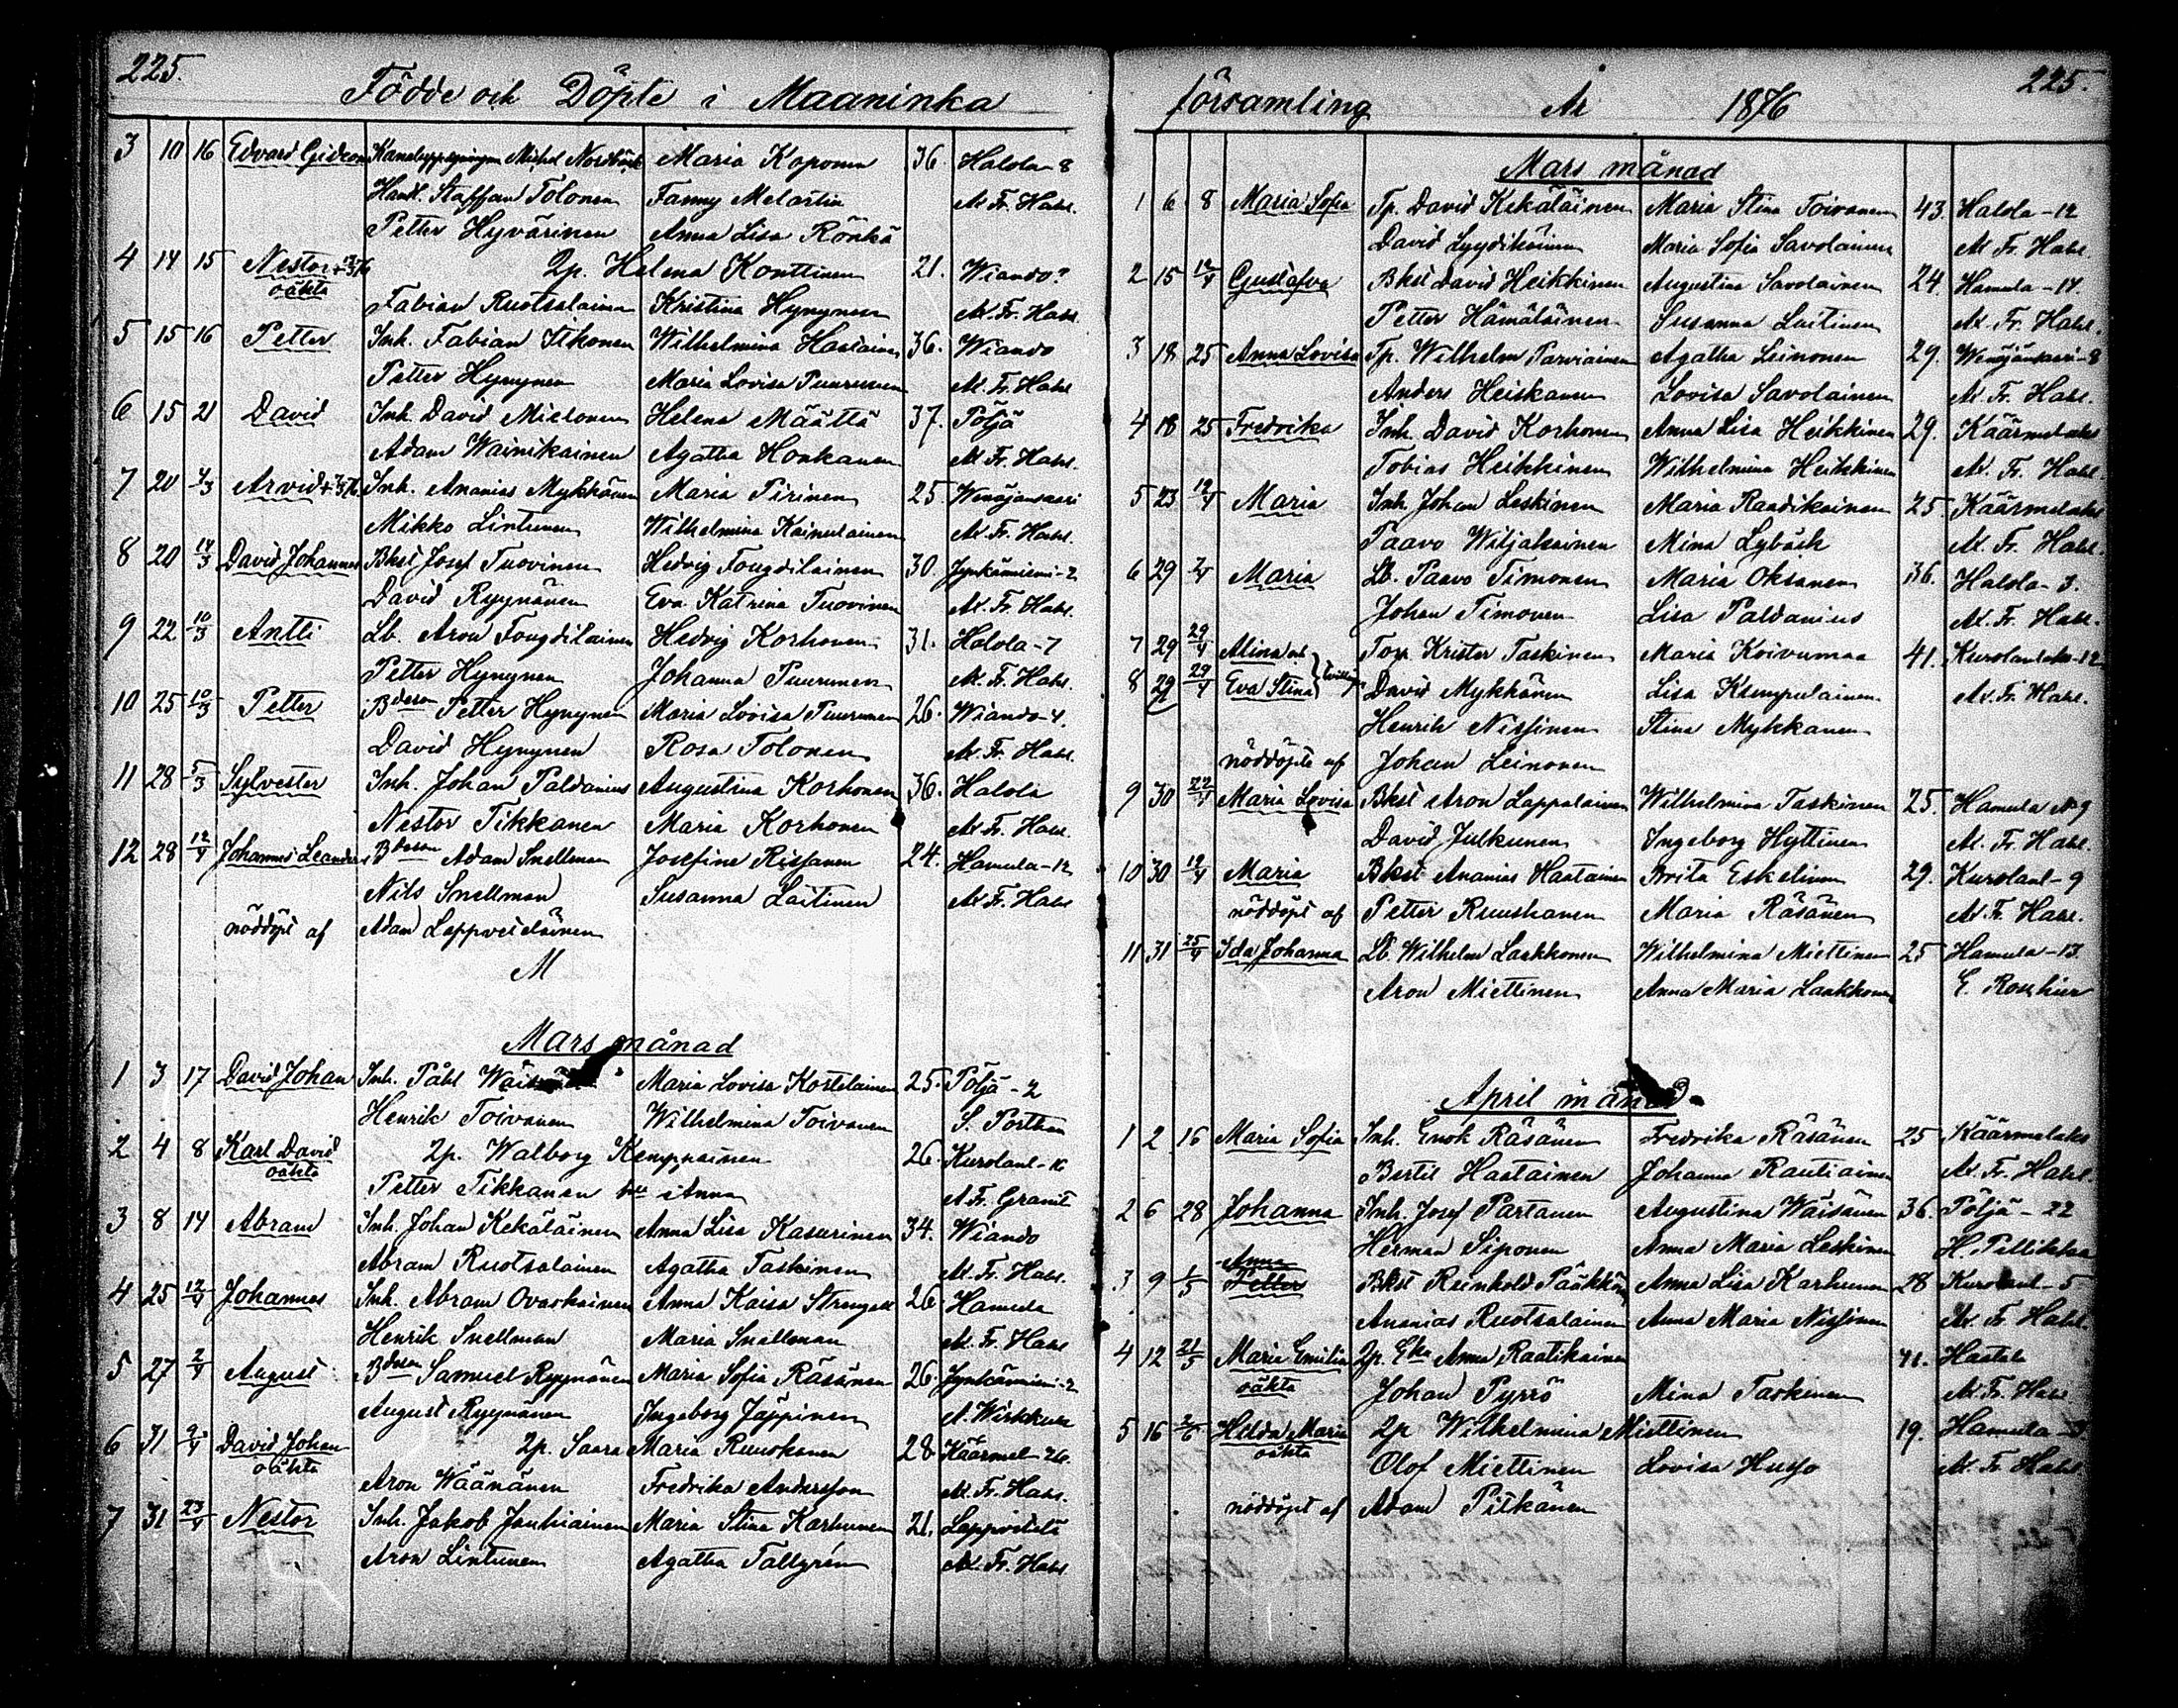 225.
Födde och Döpte i Maaninka
3 10 16 Edvard Gideon Michel Maria Koponen 36. Halola-8
Handl. Staffan Tolonen Fanny Melartin A. Fr. Hahl.
Petter Hyvärinen Anna Lisa Rönkä
4 14 15 Nestor 2p. Helena Konttinen 21. Wiando
oäkta
Fabian Ruotsalainen Kristina Hynynen A. Fr. Hahl.
5 15 16 Petter Inh. Fabian Tikonen Wilhelmina Haatainen 36. Wiando
Petter Hynynen Maria Lovisa Puurunen A. Fr. Hahl
6 15 21 David Inh. David Mielonen Helena Määttä 37. Pöljä
Adam Wainikainen Agatha Honkanen A. Fr. Hahl.
7 20 4/3 Arvid Inh. Ananias Mykkänen Maria Pirinen 25 Wenäjänsaari
Mikko Lintunen Wilhelmina Kainulainen A. Fr. Hahl.
8 20 14/3 David Johannes Bkst Josef Tuovinen Hedvig Fougdilainen 30. Jynkänniemi-2
David Ryynänen Eva Katrina Tuovinen A. Fr. Hahl.
9 22 10/3 Antti Lb. Aron Fougdilainen Hedvig Korhonen 31. Halola-7
Petter Hynynen Johanna Puurunen A. Fr. Hahl.
10 25 10/3 Petter Bdeson Petter Hynynen Maria Lovisa Puurunen 26. Wiando-4.
David Hynynen Rosa Tolonen A. Fr. Hahl.
11 28 5/3 Sylvester Inh. Johan Paldanius Augustina Korhonen 36. Halola
Nestor Tikkanen Maria Korhonen A. Fr. Hahl.
12 28 12/4 Johannes Leander Bdeson Adam Snellman Josefina Rissanen 24. Hamula-12
Nils Snellman Susanna Laitinen A. Fr. Hahl
nöddöpt af Adam Lappveteläinen
M
Mars månad
1 3 17 David Johan Inh. Påhl Maria Lovisa Kostelainen 25. Pöljä-2
Henrik Toivanen Wilhelmina Toivanen S. Porthan
2 4 8 Karl David 2p. Walborg Kemppainen 26. Kurolanl-16
oäkta
Petter Tikkanen Anna A. Fr. Granit
3 8 14 Abram Inh. Johan Kekäläinen Anna Lisa Kasurinen 34. Wiando
Abram Ruotsalainen Agatha Taskinen A. Fr. Hahl.
4 25 12/4 Johannes Inh. Abram Ovaskainen Anna Kaisa Strengell 26. Hamula
Henrik Snellman Maria Snellman A. Fr. Hahl
5 27 2/4 August Bdeson Samuel Ryynänen Maria Sofia Räsänen 26. Jynkänniemi-2
August Ryynänen Ingeborg Jäppinen A. Wirkkula
6 31 9/4 David Johan 2p. Saara Maria Ruuskanen 28 Käärmel-26.
oäkta
Aron Wäänänen Fredrika Andersson A. Fr. Hahl.
7 31 23/4 Nestor Inh. Jakob Jauhiainen Maria Stina Karhunen 21. Lappvetelä
Aron Lintunen Agatha Tallgrén A. Fr. Hahl
225.
församling År 1876
Mars månad
1 6 8 Maria Sofia Tp. David Kekäläinen Maria Stina Toivanen 43. Halola-12
David Lyydikäinen Maria Sofia Savolainen A. Fr. Hahl.
2 15 12/4 Gustafva Bkst David Heikkinen Augustina Savolainen 24. Hamula-14.
Petter Hämäläinen Susanna Laitinen A. Fr. Hahl.
3 18 25 Anna Lovisa Tp. Wilhelm Parviainen Agatha Leinonen 29. Wenäjänsaari-8
Anders Heiskanen Lovisa Savolainen A. Fr. Hahl.
4 18 25 Fredrika Inh. David Korhonen Anna Lisa Heikkinen 29. Käärmelaks
Tobias Heikkinen Wilhelmina Heikkinen A. Fr. Hahl.
5 23 12/4 Maria Inh. Johan Leskinen Maria Raadikainen 25. Käärmelaks
Paavo Wiljakainen Mina Lybäck A. Fr. Hahl.
6 29 2/4 Maria Lb. Paavo Timonen Maria Oksanen 36. Halola-3.
Johan Timonen Lisa Paldanius A. Fr. Hahl.
7 29 29/4 Alina och Torp. Krister Taskinen Maria Koivumaa 41. Kurolanlaks-12
8 29 29/4 Eva Stina tvillingar David Mykkänen Lisa Kumpulainen A. Fr. Hahl.
Henrik Nissinen Stina Mykkanen
nöddöpte af Johan Leinonen
9 30 22/4 Maria Lovisa Bkst Aron Lappalainen Wilhelmina Taskinen 25. Hamula No 9
David Julkunen Ingeborg Hyttinen A. Fr. Hahl.
10 30 12/4 Maria Bkst Ananias Haatainen Brita Eskelinen 29. Kurolanl-9
nöddöpt af Petter Ruuskanen Maria Räsänen A. Fr. Hahl.
11 31 25/4 Ida Johanna Lb. Wilhelm Laakkonen Wilhelmina Miettinen 25 Hamula-13.
Aron Miettinen Anna Maria Laakkonen E. Roschier
April månad
1 2 16 Maria Sofia Inh. Enok Räsänen Fredrika Räsänen 25 Käärmelaks
Bertil Haatainen Johanna Rautiainen A. Fr. Hahl.
2 6 28 Johanna Inh. Josef Partanen Augustina Wäisänen 36. Pöljä-22
Herman Siponen Anna Maria Leskinen H. Pellikka
Anna
3 9 1/5 Petter Bkst Reinhold Pääkkönen Anna Lisa Karhunen 28 Kurolanl-5
Ananias Ruotsalainen Anna Maria Nissinen A. Fr. Hahl.
4 12 21/5 Maria Emilia 2p. Eka Anna Raatikainen 41. Haatala
oäkta Johan Pyrrö Mina Taskinen A. Fr. Hahl
5 16 2/6 Hilda Maria 2p Wilhelmina Miettinen 19. Hamula
oäkta Olof Miettinen Lovisa Husso A. Fr. Hahl
nöddöpt af Adam Pitkänen